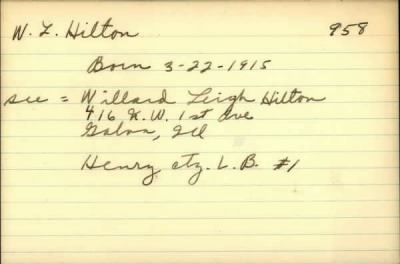 W. L. Hilton 958
Born 3-22-1915
see = Willard Leigh Hilton
416 N.W. 1st Ave
Galva, Ill
Henry cty. L.B. #1